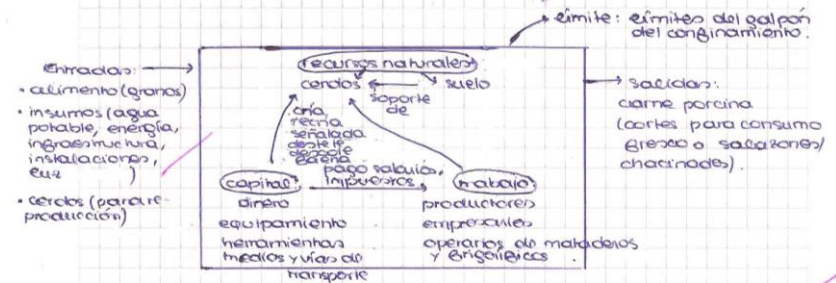 límite: límites del galpón
del confinamiento.
entradas:
• alimento (granos)
• insumos (agua
potable, energía,
infraestructura,
instalaciones,
luz )
• cerdos (para re-
producción)
recursos naturales:
cerdos suelo
soporte
de
cría
recría
señalada
destete
descole
faena
pago salarios,
impuestos
capital:
dinero
equipamiento
herramientas
medios y vías de
transporte
trabajo:
productores
empresarios
operarios de mataderos
y frigoríficos
salidas:
carne porcina
(cortes para consumo
fresco o salazones/
chacinados).